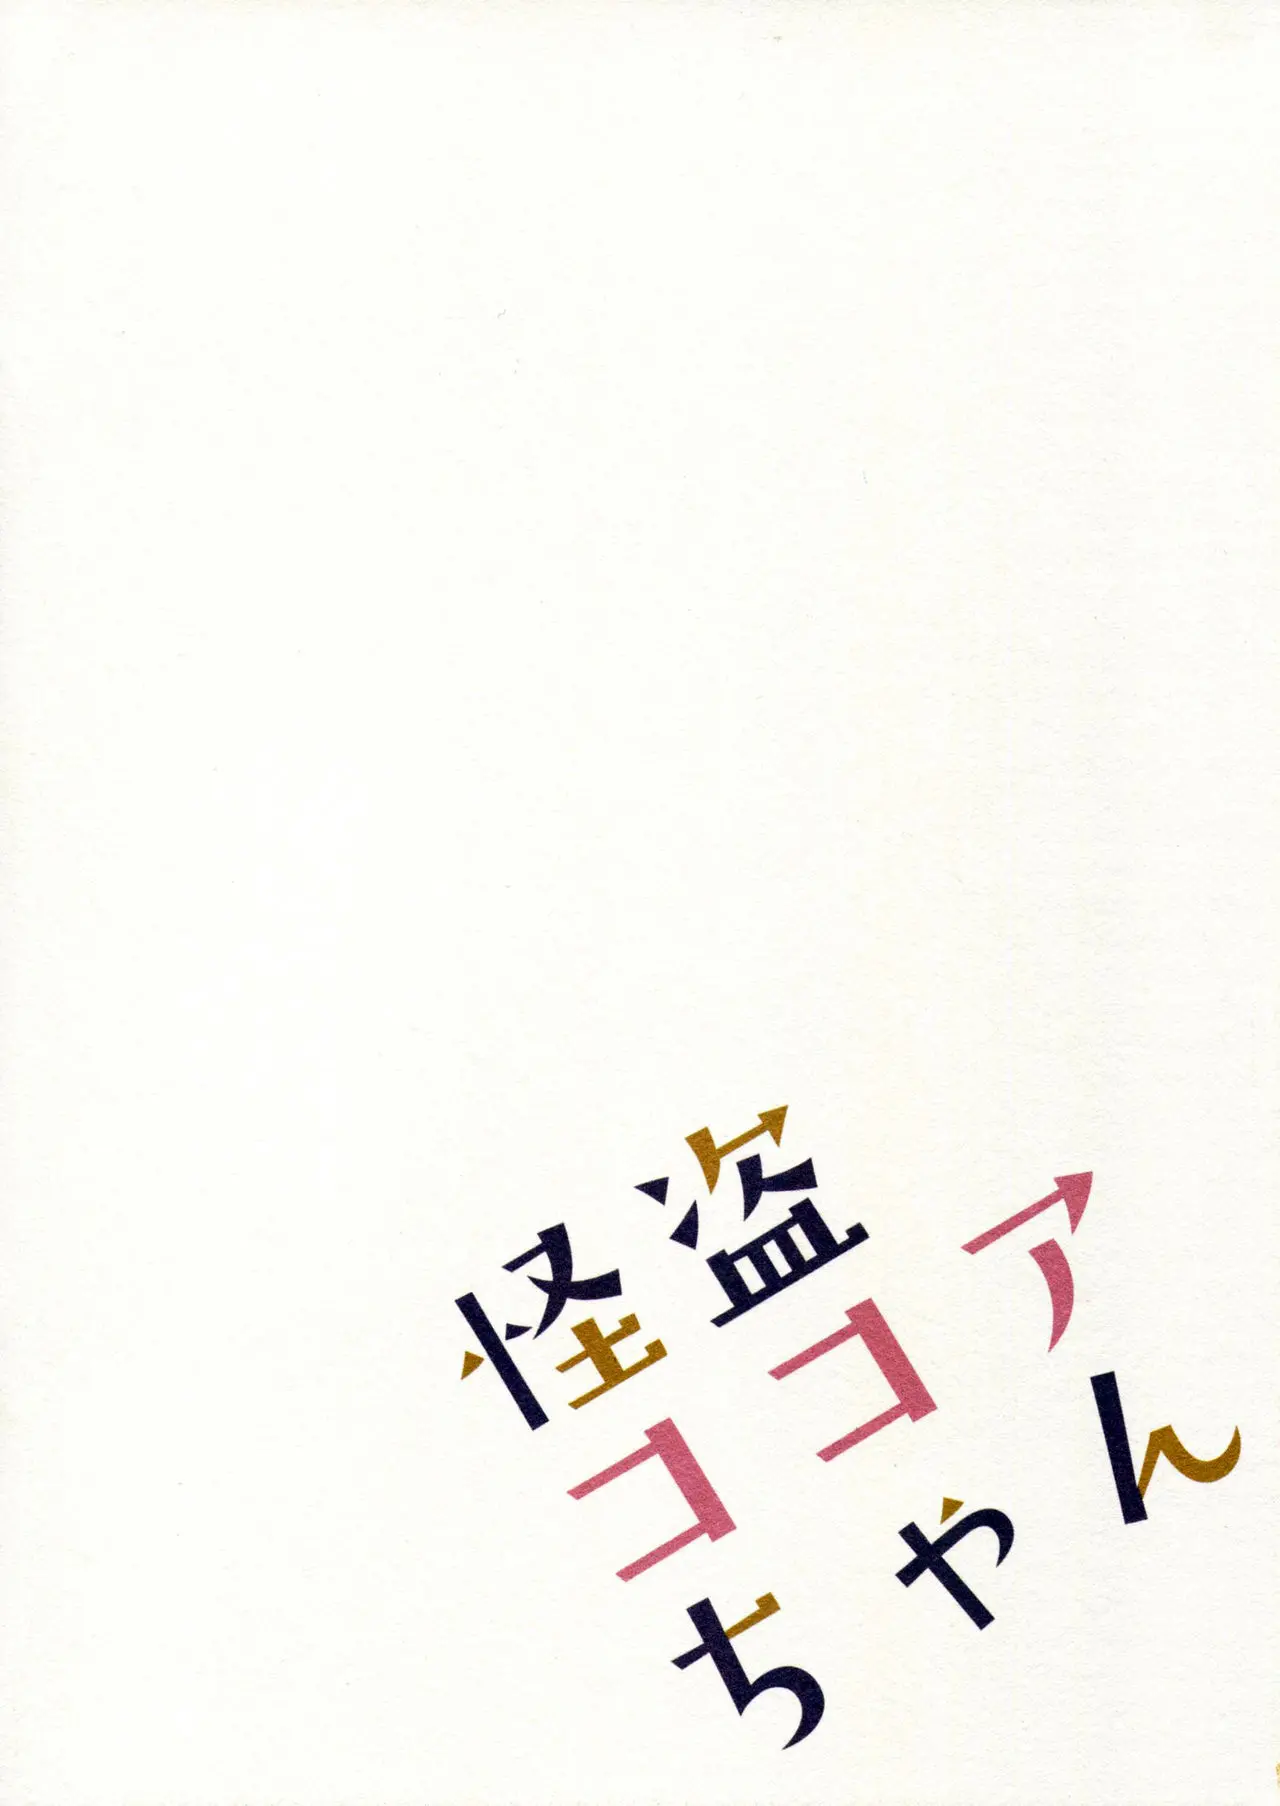 怪盗
ココア
ちゃん